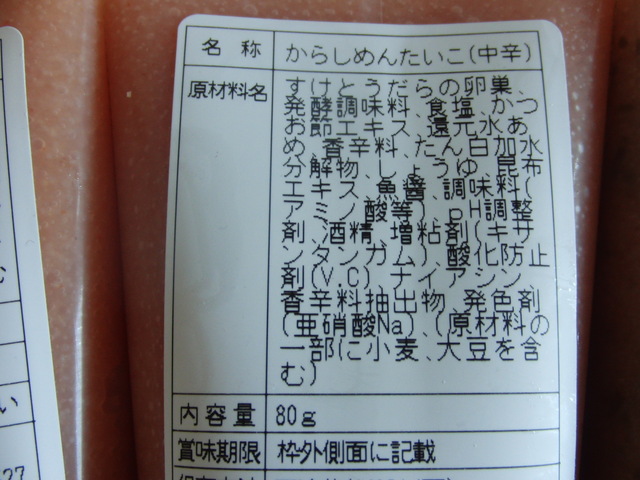 名称 からしめんたいこ(中辛)
原材料名 すけとうだらの卵巣、
発酵調味料、食塩、かつ
お節エキス、還元水あ
め、香辛料、たん白加水
分解物、しょうゆ、昆布
エキス、魚醬、調味料(
アミノ酸等)、pH調整
剤、酒精、増粘剤(キサ
ンタンガム)、酸化防止
剤(V.C)、ナイアシン、
香辛料抽出物、発色剤
(亜硝酸Na)、(原材料の
一部に小麦、大豆を含
む)
内容量 80g
賞味期限 枠外側面に記載
い
27